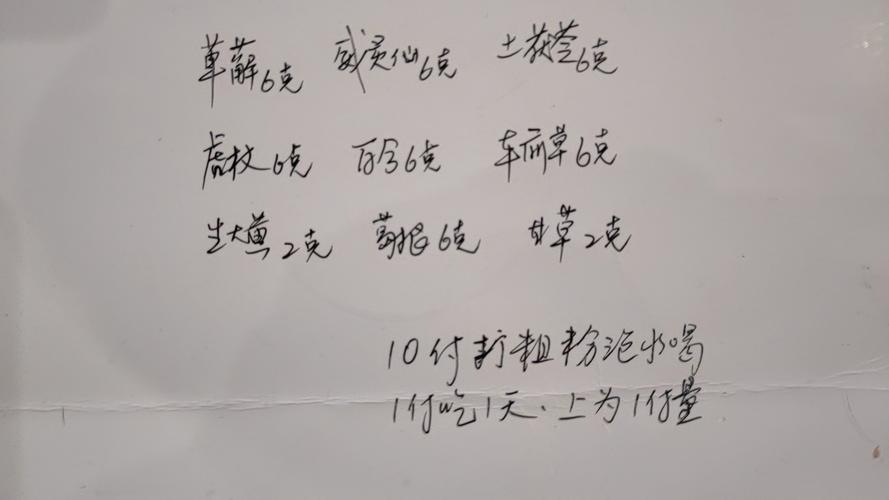 草薢6克 威灵仙6克 土茯苓6克
虎杖6克 百合6克 车前草6克
生大黄2克 葛根6克 甘草2克
10付打粗粉泡水喝
1付吃1天.上为1付量